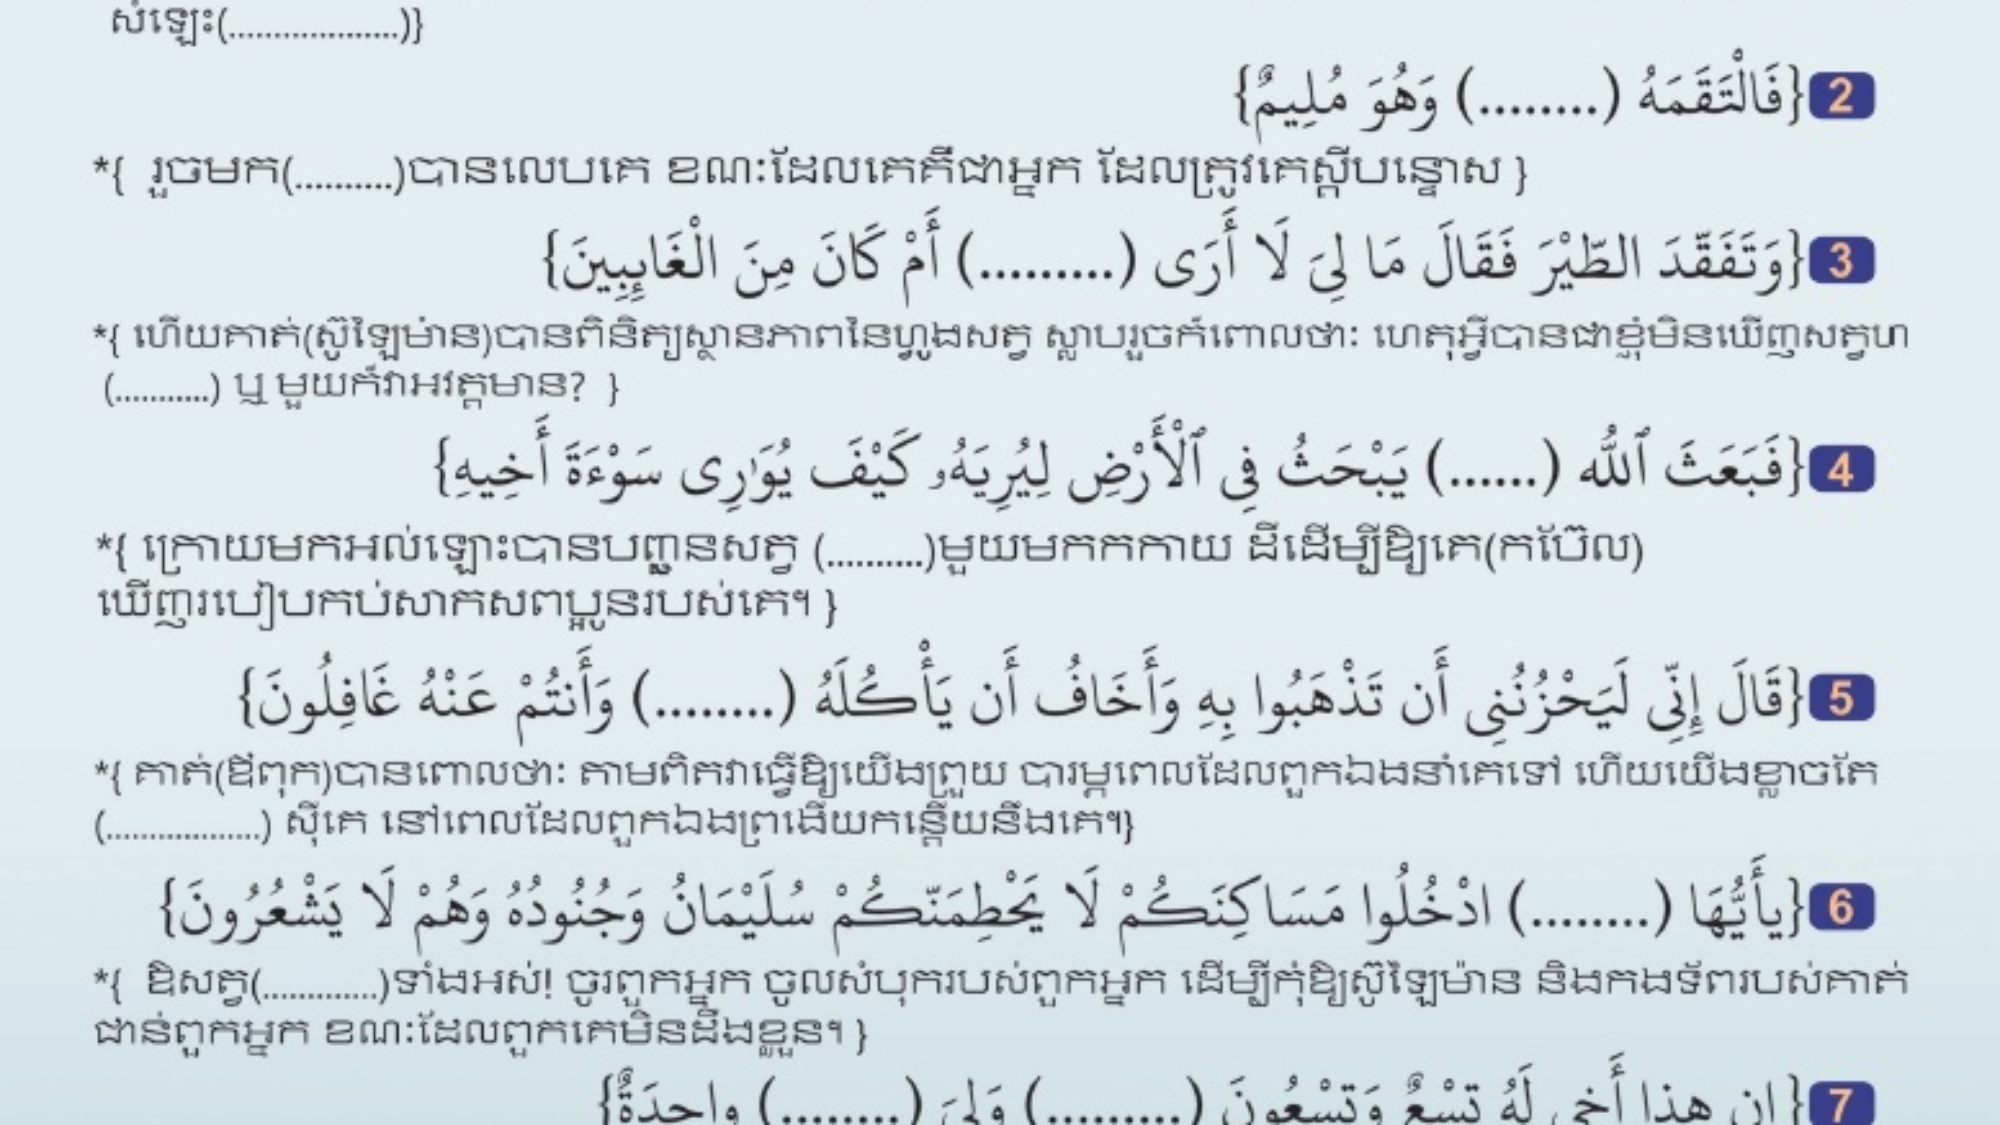 សំឡេះ(...................)}
2 {فَالْتَقَمَهُ (........) وَهُوَ مُلِيمٌ}
*{ រួចមក(...........)បានលេបគេ ខណៈដែលគេគឺជាអ្នក ដែលត្រូវគេស្ដីបន្ទោស }
3 {وَتَفَقَّدَ الطَّيْرَ فَقَالَ مَا لِيَ لَا أَرَى (.........) أَمْ كَانَ مِنَ الْغَايِبِينَ}
*{ ហើយគាត់(ស៊ូឡៃម៉ាន)បានពិនិត្យស្ថានភាពនៃហ្វូងសត្វ ស្លាបរួចក៏ពោលថា: ហេតុអ្វីបានជាខ្ញុំមិនឃើញសត្វហ
(...........) ឬ មួយក៏វាអវត្តមាន? }
4 {فَبَعَثَ ٱللَّه (......) يَبْحَثُ فِي ٱلْأَرْضِ لِيُرِيَهُۥ كَيْفَ يُوَٰرِى سَوْءَةَ أَخِيهِ}
*{ ក្រោយមកអល់ឡោះបានបញ្ជូនសត្វ (..........)មួយមកកកាយ ដីដើម្បីឱ្យគេ(កប៊ែល)
ឃើញរបៀបកប់សាកសពប្អូនរបស់គេ។ }
5 {قَالَ إِنِّي لَيَحْزُنُنِى أَن تَذْهَبُوا بِهِ وَأَخَافُ أَن يَأْكُلَهُ (........) وَأَنتُمْ عَنْهُ غَافِلُونَ}
*{ គាត់(ឪពុក)បានពោលថា: តាមពិតវាធ្វើឱ្យយើងព្រួយ បារម្ភពេលដែលពួកឯងនាំគេទៅ ហើយយើងខ្លាចតែ
(..................) ស៊ីគេ នៅពេលដែលពួកឯងព្រងើយកន្តើយនឹងគេ។}
6 {يأَيُّهَا (........) ادْخُلُوا مَسَاكِنَكُمْ لَا يَحْطِمَنَّكُمْ سُلَيْمَانُ وَجُنُودُهُ وَهُمْ لَا يَشْعُرُونَ}
*{ ឱសត្វ(.............)ទាំងអស់! ចូរពួកអ្នក ចូលសំបុករបស់ពួកអ្នក ដើម្បីកុំឱ្យស៊ូឡៃម៉ាន និងកងទ័ពរបស់គាត់
ជាន់ពួកអ្នក ខណៈដែលពួកគេមិនដឹងខ្លួន។ }
7 {إن هذا أَخي لَهُ تسْعٌ وَتسْعُونَ (.........) وَليَ (........) واحدَةٌ}